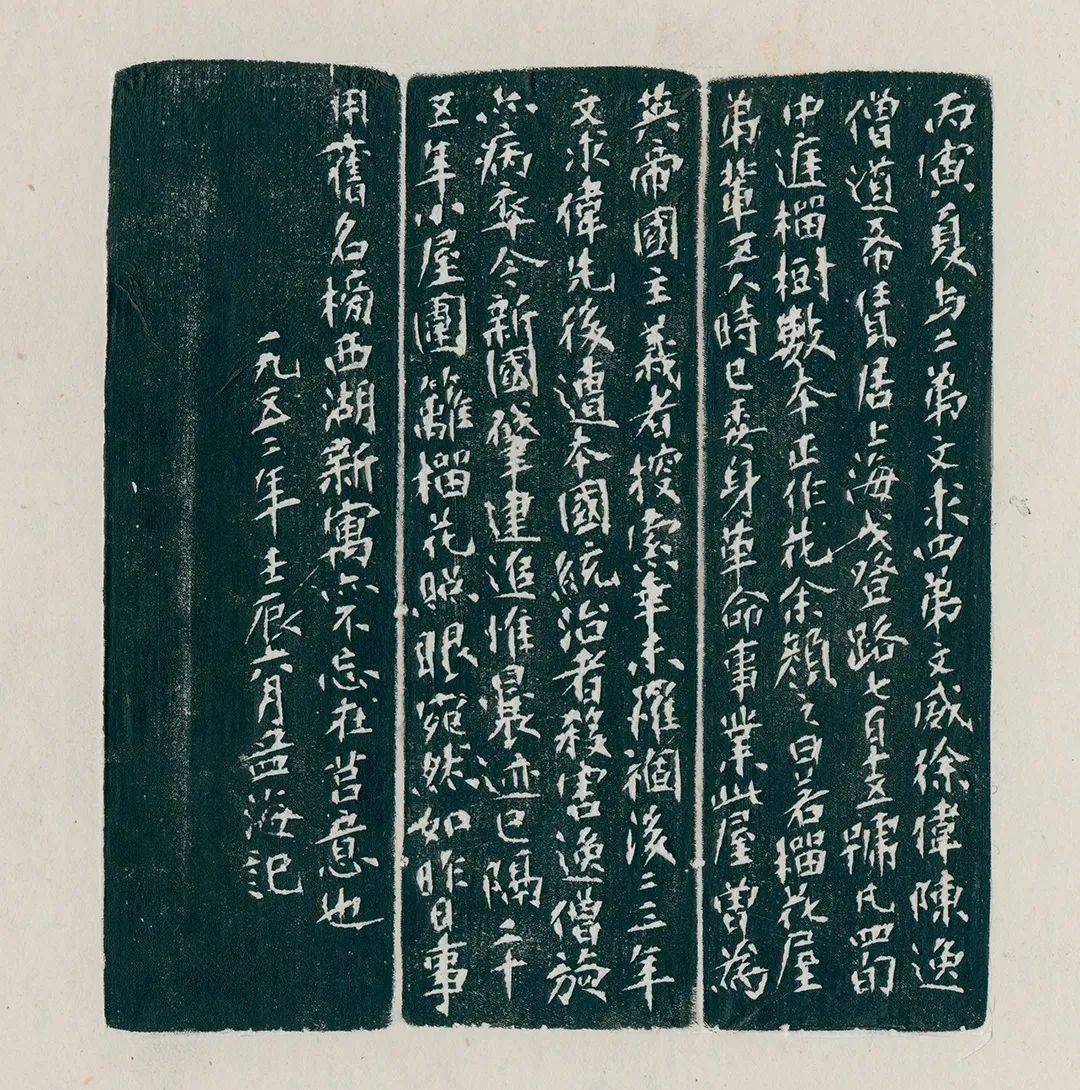 丙寅夏与二弟文求四弟文威徐偉陳逸
僧道希賃居上海戈登路七百十五號凡四間
中庭榴樹數本正作花余顏之曰若榴花屋
弟輩五人時已委身革命事業此屋曾為
英帝國主義者搜索幸未罹禍後二三年
文求偉先後遭本國統治者殺害逸僧旋
亦病卒今新國肇建追惟曩迹已隔二十
五年小屋圍籬榴花照眼宛然如昨日事
用舊名榜西湖新寓亦不忘在莒意也
一九五二年壬辰六月孟海記